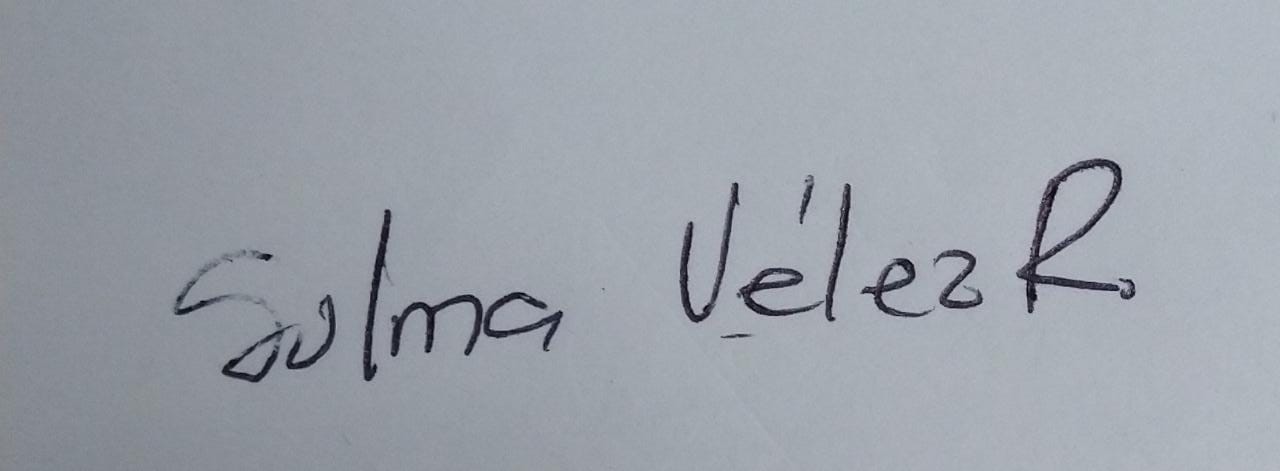 Sulma Vélez R.